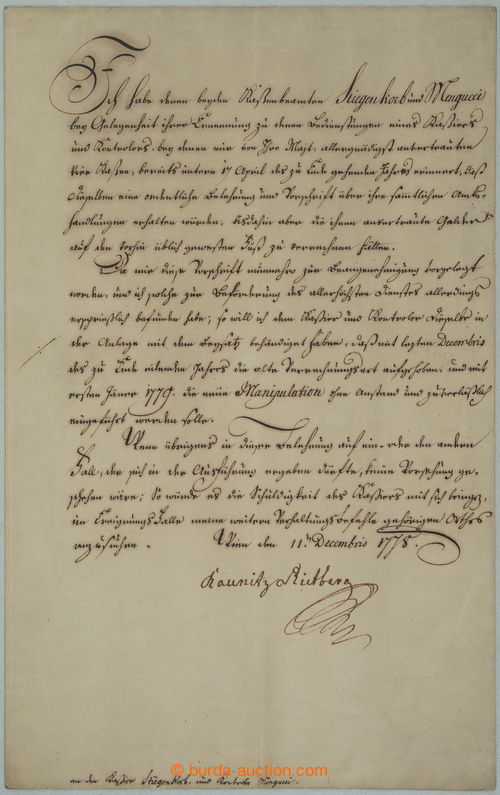 Ich habe denen beyden Kaßenbeamten Stiegenkorb und Mengucci
bey Gelegenheit ihrer Ernennung zu denen Bedienstungen eines Kaßiers
und Kontrolors, bey denen mir von Ihro Majt: allergnädigst anvertrauten
vier Kaßen, bereits untern 17 April des zu Ende gehenden Jahrs erinnert, daß
Dieselben eine ordentliche Belehrung und Vorschrift über ihre sammtlichen Amts-
handlungen erhalten würden, bisdahin aber die ihnen anvertraute Gelder
auf den vorhin üblich geweßten Fuß zu verrechnen hätten.
Da mir diese Vorschrift nunmehro zur Beangenehmigung vorgelegt
worden, und ich solche zur Beförderung des allerhöchsten Dienstes allerdings
ersprießlich befunden habe; so will ich dem Kaßier und Kontrolor Dieselbe in
der Anlage mit dem Beysatz behändiget haben, daß mit lezten Decembris
des zu Ende eilenden Jahres die alte Verrechnungsart aufgehoben, und mit
ersten Jäner 1779. die neüe Manipulation ohne Anstand und zuverläßlich
eingeführt werden solle.
Wenn übrigens in dieser Belehrung auf ein- oder den andern
Fall, der sich in der Ausführung ergeben dürfte, keine Vorsehung ge-
schehen wäre; so würde es die Schuldigkeit des Kaßiers mit sich bringen,
im Ereignungs Falle meine weitern Verhaltungsbefehle gehörigen Orthes
anzusuchen. Wien den 11t Decembris 1778.
Kaunitz Rietberg
an den Kaßier Stiegenkorb und Kontrolor Mengucci.
© burda-auction.com